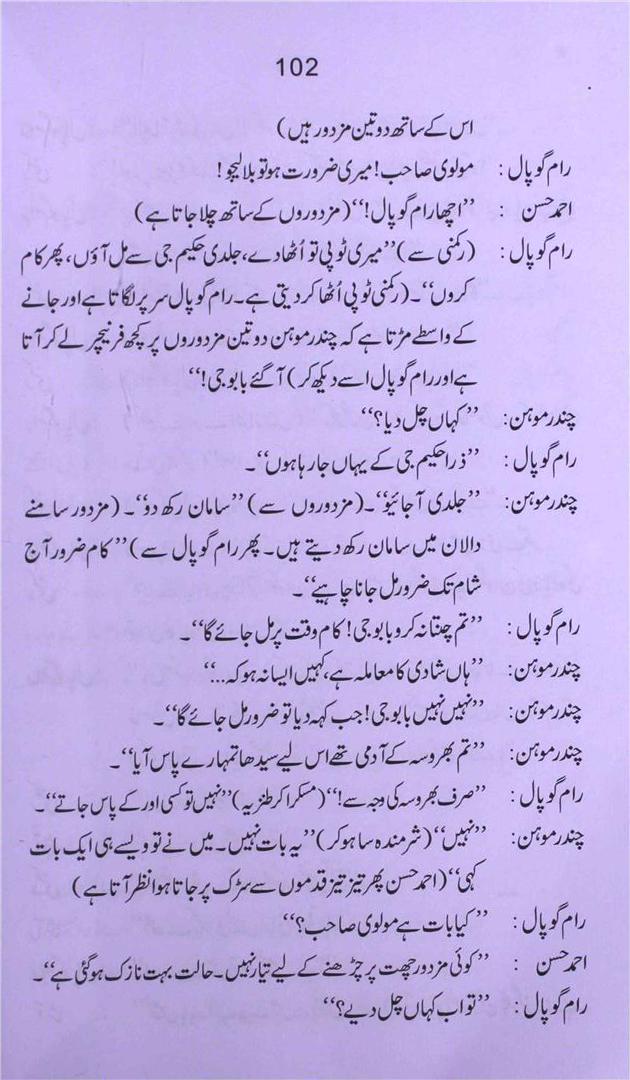 102
اس کے ساتھ دو تین مزدور ہیں)
رام گوپال : مولوی صاحب! میری ضرورت ہو تو بلا لیجو!
احمد حسن : ’’اچھا رام گوپال!‘‘ (مزدوروں کے ساتھ چلا جاتا ہے)
رام گوپال : (رکمنی سے) ’’میری ٹوپی تو اُٹھا دے، جلدی حکیم جی سے مل آؤں، پھر کام
کروں‘‘۔ (رکمنی ٹوپی اُٹھا کر دیتی ہے۔ رام گوپال سر پر لگاتا ہے اور جانے
کے واسطے مڑتا ہے کہ چندر موہن دو تین مزدوروں پر کچھ فرنیچر لے کر آتا
ہے اور رام گوپال اسے دیکھ کر) آ گئے بابو جی!‘‘
چندر موہن: ’’کہاں چل دیا؟‘‘
رام گوپال : ’’ذرا حکیم جی کے یہاں جا رہا ہوں‘‘۔
چندر موہن: ’’جلدی آ جائیو‘‘۔ (مزدوروں سے) ’’سامان رکھ دو‘‘۔ (مزدور سامنے
دالان میں سامان رکھ دیتے ہیں۔ پھر رام گوپال سے) ’’کام ضرور آج
شام تک ضرور مل جانا چاہیے‘‘۔
رام گوپال : ’’تم چنتا نہ کرو بابو جی! کام وقت پر مل جائے گا‘‘۔
چندر موہن: ’’ہاں شادی کا معاملہ ہے، کہیں ایسا نہ ہو کہ...‘‘
چندر موہن: ’’نہیں نہیں بابو جی! جب کہہ دیا تو ضرور مل جائے گا‘‘۔
چندر موہن: ’’تم بھروسہ کے آدمی تھے اس لیے سیدھا تمہارے پاس آیا‘‘۔
رام گوپال : ’’صرف بھروسہ کی وجہ سے!‘‘ (مسکرا کر طنزیہ) ’’نہیں تو کسی اور کے پاس جاتے‘‘۔
چندر موہن: ’’نہیں‘‘ (شرمندہ سا ہو کر) ’’یہ بات نہیں۔ میں نے تو ویسے ہی ایک بات
کہی‘‘ (احمد حسن پھر تیز تیز قدموں سے سڑک پر جاتا ہوا نظر آتا ہے)
رام گوپال : ’’کیا بات ہے مولوی صاحب؟‘‘
احمد حسن : ’’کوئی مزدور چھت پر چڑھنے کے لیے تیار نہیں۔ حالت بہت نازک ہو گئی ہے‘‘۔
رام گوپال : ’’تو اب کہاں چل دیے؟‘‘